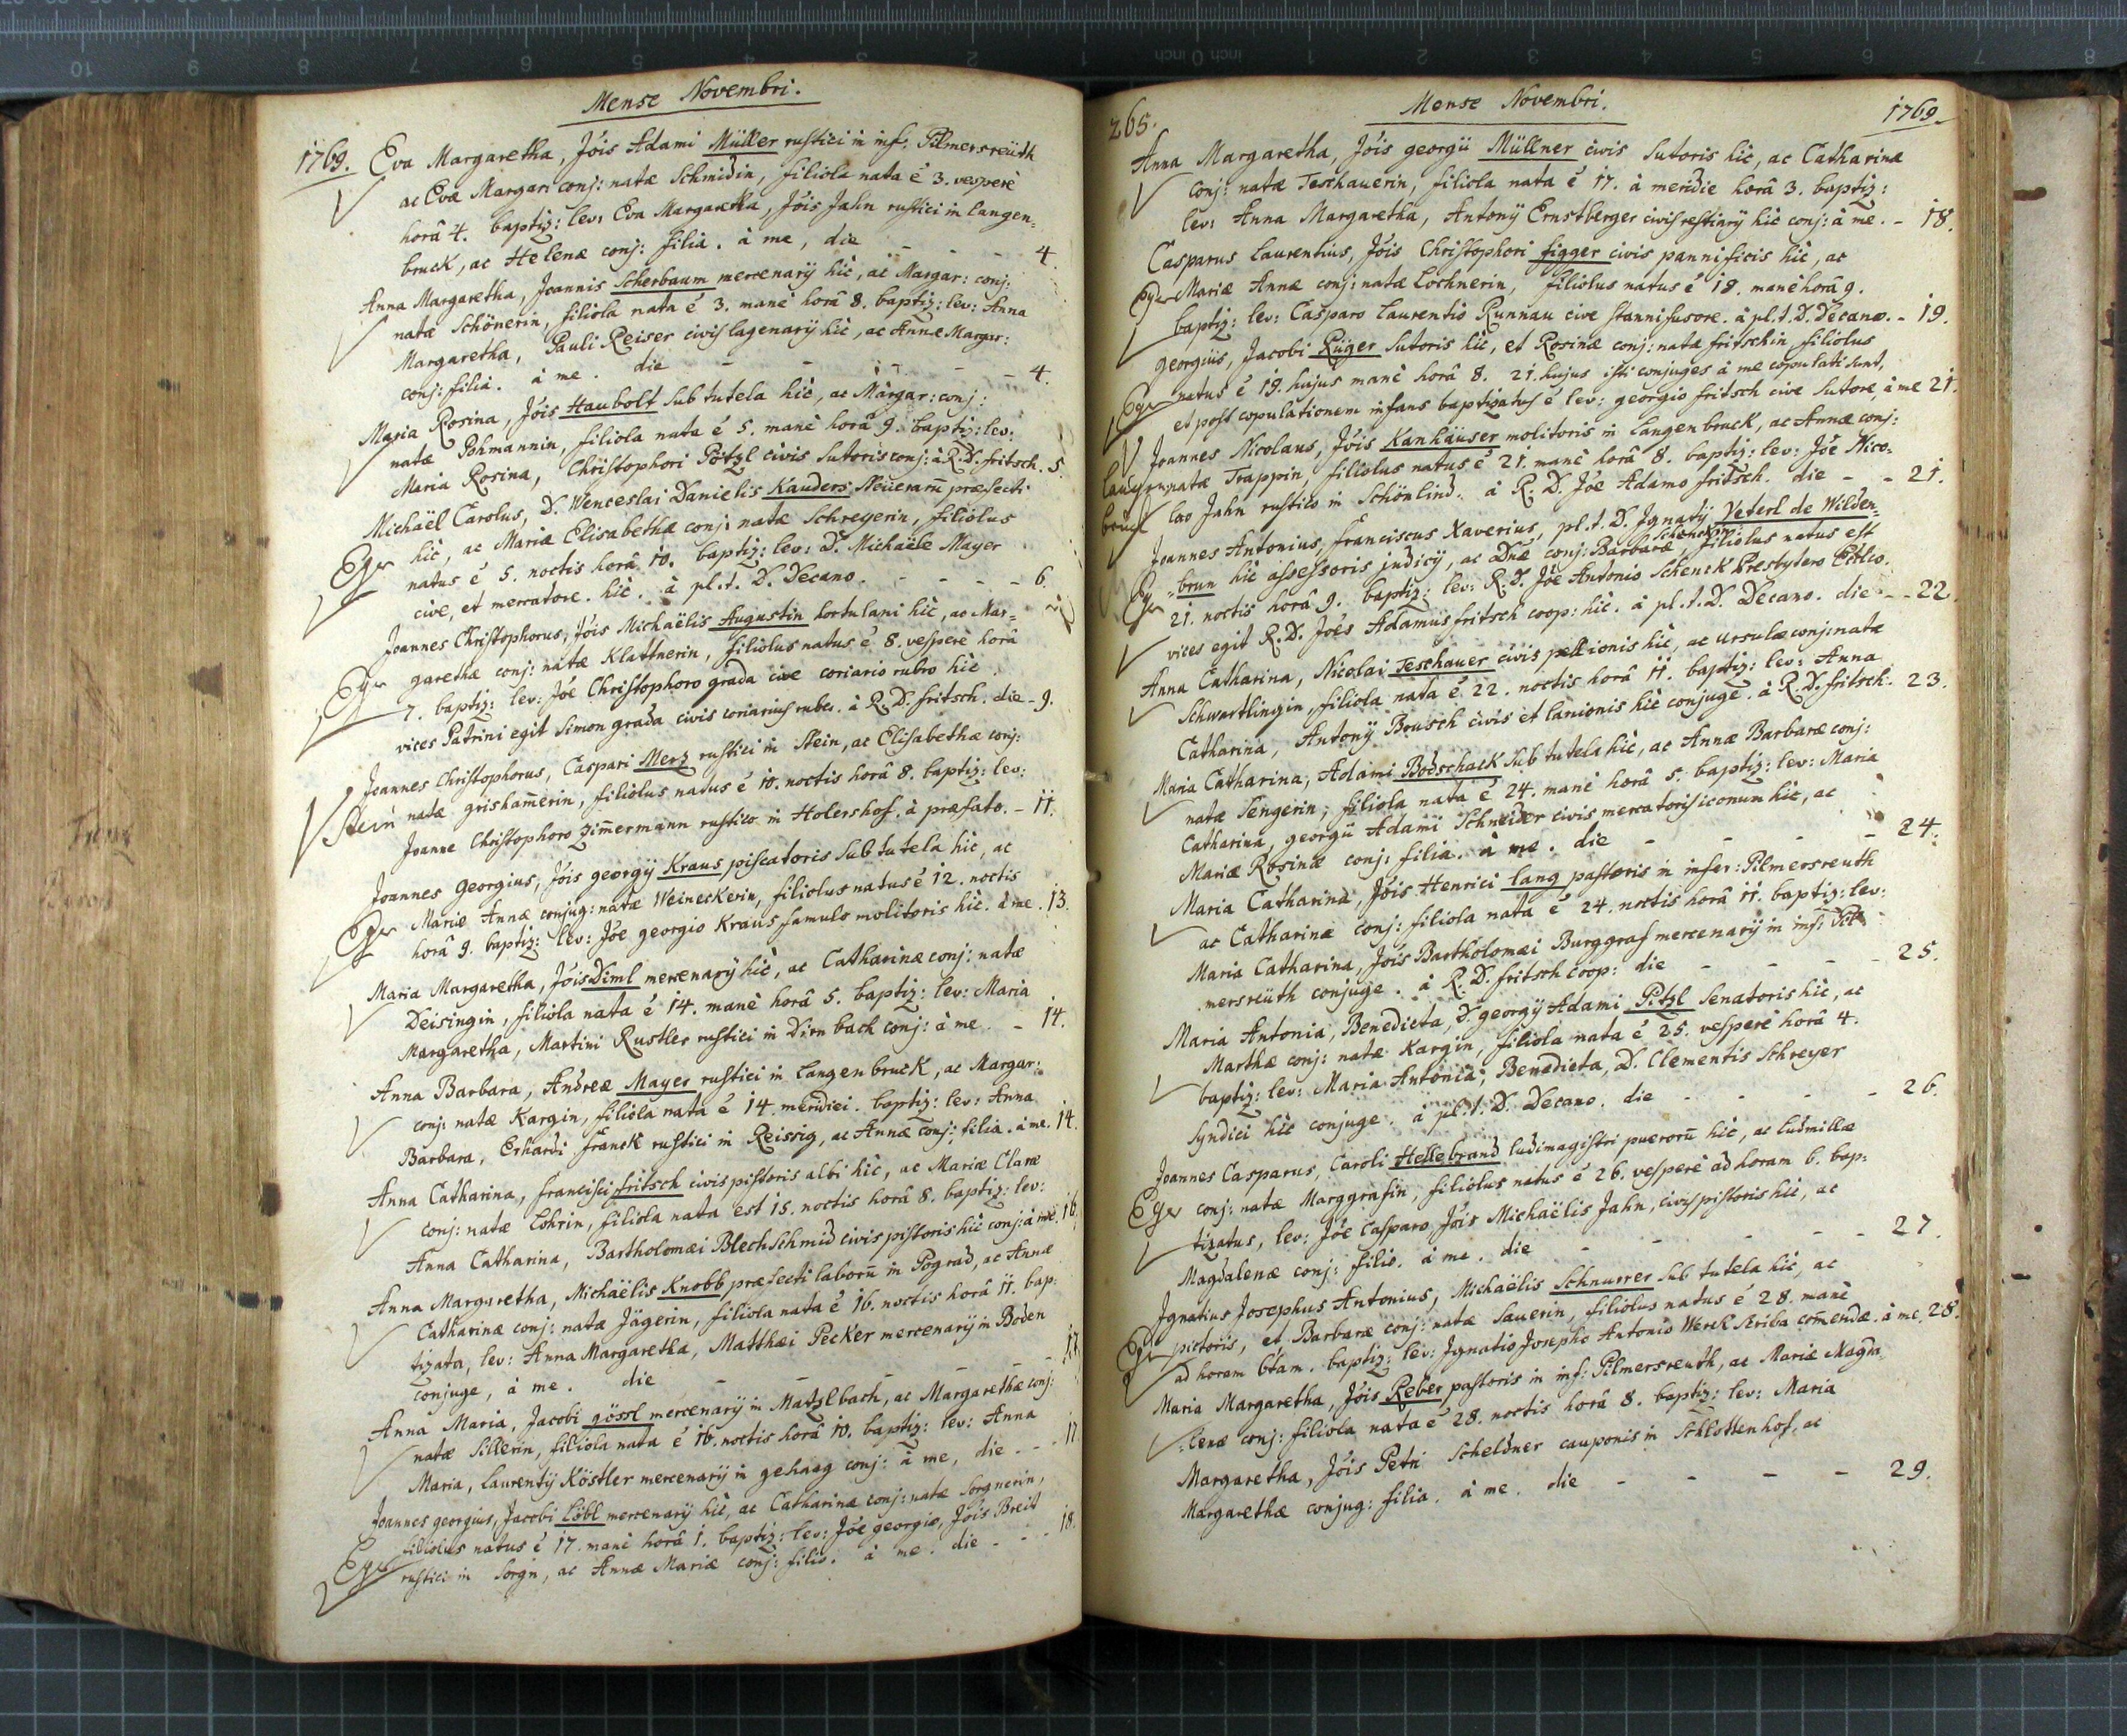 Mense Novembri.
1769. Eva Margaretha, Jois Adami Müller rustici in inf: Pilmersreüth
ac Evæ Margar: conj: natæ Schmidin, filiola nata é 3. vesperè
horâ 4. baptiz: lev: Eva Margaretha, Jois Jahn rustici in Langen=
bruck, ac Helenæ conj: filia. à me, die - - - 4.
Anna Margaretha, Joannis Scherbaum mercenarÿ hìc, ac Margar: conj:
natæ Schönerin, filiola nata é 3. manè horâ 8. baptiz: lev: Anna
Margaretha, Pauli Reiser civis lagenarÿ hìc, ac Annæ Margar:
conj: filia. à me. die - - - - 4.
Maria Rosina, Jois Haubolt sub tutela hìc, ac Margar: conj:
natæ Pohmannin, filiola nata é 5. manè horâ 9. baptiz: lev:
Maria Rosina, Christophori Pötzl civis sutoris conj: à R. D. fritsch. 5.
Michaël Carolus, D. Wenceslai Danielis Kauders præfecti
hìc, ac Mariæ Elisabethæ conj: natæ Schreyerin, filiolus
Eger natus é 5. noctis horâ 10. baptiz: lev: D. Michaële Mayer
cive, et mercatore hìc. à pl. t. D. Decano. - - - - 6.
Joannes Christophorus, Jois Michaëlis Augustin hortulani hìc, ac Mar=
Eger garethæ conj: natæ Klattnerin, filiolus natus é 8. vesperè horâ
7. baptiz: lev: Jóe Christophoro grada cive coriario rubro hìc.
vices Patrini egit Simon grada civis coriarius ruber. à R. D. fritsch. die - 9.
Joannes Christophorus, Caspari Merz rustici in Stein, ac Elisabethæ conj:
Stein natæ grishamerin, filiolus natus é 10. noctis horâ 8. baptiz: lev:
Joanne Christophoro Zimermann rustico in Holershof. à præfato. - 11.
Joannes Georgius, Jois georgÿ Kraus piscatoris sub tutela hìc, ac
Eger Mariæ Annæ conjug: natæ Weineckerin, filiolus natus é 12. noctis
horâ 9. baptiz: lev: Jóe georgio Kraus famulo molitoris hìc. à me. 13.
Maria Margaretha, Jois Diml mercenarÿ hìc, ac Catharinæ conj: natæ
Deisingin, filiola nata é 14. manè horâ 5. baptiz: lev: Maria
Margaretha, Martini Rustler rustici in Dirnbach conj: à me. - 14.
Anna Barbara, Andreæ Mayer rustici in Langenbruck, ac Margar:
conj: natæ Kargin, filiola nata é 14. meridiei. baptiz: lev: Anna
Barbara, Erhardi Franck rustici in Reissig, ac Annæ conj: filia. à me. 14.
Anna Catharina, francisci fritsch civis pistoris albi hìc, ac Mariæ Claræ
conj: natæ Lohrin, filiola nata est 15. noctis horâ 8. baptiz: lev:
Anna Catharina, Bartholomæi Blechschmid civis pistoris hìc conj: à me. 16.
Anna Margaretha, Michaëlis Knobb præfecti laborũ in Pograd, ac Annæ
Catharinæ conj: natæ Jägerin, filiola nata é 16. noctis horâ 11. bap:
tizata, lev: Anna Margaretha, Matthæi Pecker mercenarÿ in Boden
conjuge, à me. die - - - - 17.
Anna Maria, Jacobi gössl mercenarÿ in Matzlbach, ac Margarethæ conj:
natæ Sillerin, filiola nata é 16. noctis horâ 10. baptiz: lev: Anna
Maria, Laurentÿ Köstler mercenarÿ in gehaag conj: à me, die - - 17.
Joannes georgius, Jacobi Löbl mercenarÿ hìc, ac Catharinæ conj: natæ Sorgnerin,
Eger filiolus natus é 17. manè horâ 1. baptiz: lev: Jóe georgio, Jois Breit
rustici in Sorgn, ac Annæ Mariæ conj: filio. à me. die - - 18.
265. Mense Novembri. 1769
Anna Margaretha, Jois georgii Müllner civis sutoris hìc, ac Catharinæ
conj: natæ Teschauerin, filiola nata é 17. à meridie horâ 3. baptiz:
lev: Anna Margaretha, Antonÿ Ernstberger civis restiarÿ hìc conj: à me. - 18.
Casparus Laurentius, Jois Christophori figger civis pannificis hìc, ac
Eger Mariæ Annæ conj: natæ Lochnerin, filiolus natus é 18. manè horâ 9.
baptiz: lev: Casparo Laurentio Runnau cive stannifusore. à pl. t. D. Decano. - 19.
georgius, Jacobi Rüger sutoris hìc, et Rosinæ conj: natæ fritschin, filiolus
Eger natus é 19. hujus manè horâ 8. 21. hujus isti conjuges à me copulati sunt,
et post copulationem infans baptizatus é lev: georgio fritsch cive sutore, à me 21.
Joannes Nicolaus, Jois Kanhäuser molitoris in Langenbruck, ac Annæ conj:
Langen natæ Trappin, filiolus natus é 21. manè horâ 8. baptiz: lev: Jóe Nico=
bruck lao Jahn rustico in Schönlind. à R. D. Jóe Adamo fritsch. die - - 21.
Joannes Antonius, Franciscus Xaverius, pl. t. D. Ignatÿ Veterl de Wilden=
=brun hìc assessoris judicÿ, ac Dnæ conj: Barbaræ, filiolus natus est
Eger 21. noctis horâ 9. baptiz: lev: R. D. Jóe Antonio Schenck Prestytero
vices egit R. D. Joes Adamus fritsch coop: hìc. à pl. t. D. Decano. die - - 22.
Anna Catharina, Nicolai Teschauer civis pellionis hìc, ac Ursulæ conj: natæ
Schwartlingin, filiola nata é 22. noctis horâ 11. baptiz: lev: Anna
Catharina, Antonÿ Brusch civis et lanionis hìc conjuge. à R. D. fritsch. 23.
Maria Catharina, Adami Bodschack sub tutela hìc, ac Annæ Barbaræ conj:
natæ Sengerin, filiola nata é 24. manè horâ 5. baptiz: lev: Maria
Catharina, georgii Adami Schneider civis mercatoris iconum hìc, ac
Mariæ Rosinæ conj: filia. à me. die - - - - 24.
Maria Catharina, Jois Henrici Lang pastoris in infer: Pilmersreuth
ac Catharinæ conj: filiola nata é 24. noctis horâ 11. baptiz: lev:
Maria Catharina, Jois Bartholomæi Burggraf mercenarÿ in inf: Pil
mersreüth conjuge. à R. D. fritsch coop: die - - - - 25.
Maria Antonia, Benedicta, D. georgÿ Adami Pitzl Senatoris hìc, ac
Marthæ conj: natæ Kargin, filiola nata é 25. vesperè horâ 4.
baptiz: lev: Maria Antonia, Benedicta, D. Clementis Schreyer
Syndici hìc conjuge. à pl. t. D. Decano. die - - - - 26.
Joannes Casparus, Caroli Hellebrand ludimagistri puerorũ hìc, ac Ludmillæ
Eger conj: natæ Marggrafin, filiolus natus é 26. vesperè ad horam 6. bap:
tizatus, lev: Jóe Casparo Jois Michaëlis Jahn, civis pistoris hìc, ac
Magdalenæ conj: filio. à me. die - - - - 27.
Ignatius Josephus Antonius, Michaëlis Schnurrer sub tutela hìc, ac
Eger pictoris, et Barbaræ conj: natæ Sauerin, filiolus natus é 28. manè
ad horam 6tam. baptiz: lev: Ignatio Josepho Antonio Werck scriba comendæ. à me. 28.
Maria Margaretha, Jois Reber pastoris in inf: Pilmersreuth, ac Mariæ Magda=
=lenæ conj: filiola nata é 28. noctis horâ 8. baptiz: lev: Maria
Margaretha, Jois Petri Scheldner cauponis in Schlottenhof, ac
Margarethæ conjug: filia. à me. die - - - - 29.